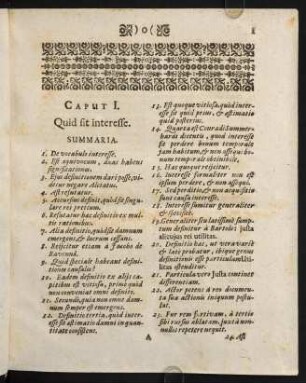 )o(
CAPUT I.
Quid sit interesse.
SUMMARIA.
1. De vocabulo interesse.
2. Est equivocum, duas habens
significationes.
3. Ejus definitionem dari posse, vi-
detur negare Alciatus.
4. Astrefutatur.
5. Accursii definitio, quid sit singu-
lare rei pretium.
6. Refutatur hac definitio ex multis
rationibus.
7. Alia definitio, quid sit damnum
emergens, & lucrum cessans.
8. Rejicitur etiam a Jacobo de
Ravenna.
9. Quid speciale habeant defini-
tiones causales?
10. Eadem definitio ex aliis ca-
pitibus est vitiosa, primò quod
non conveniat omni definito.
11. Secundò, quia non omne dam-
num semper est emergens.
12. Definitio tertia, quod inter-
esse sit æstimatio damni in quan-
titate consistens.
13. Est quoque vitiosa, quod inter-
esse sit quid prius, & æstimatio
quid posterius.
14.
hardi dicentis, quod interesse
sit perdere bonum temporale
jam habitum, & non assequi bonum
temporale obtinibile.
15. Hac quoque rejicitur.
16. Interesse formaliter non est
ipsum perdere, & non assequi.
17. Sed perditio, & non acquisitio
sunt causa interesse.
18. Interesse sumitur generaliter
& specialiter.
19. Generaliter seu latissimè sump-
tum definitur à Bartolo: justa
alicujus rei utilitas.
20. Definitio hac, ut vera variè
& latè probatur, ibique genus
definitionis esse particulam utili-
litas ostenditur.
21. Particula vero justa continet
differentiam.
22. Actor petens à reo documen-
ta sua actionis iniquum postu-
lat.
23. Fur rem furtivam, à tertio
sibi rursus ablatam, justè non-
nullis repetere nequit.
A
24. Ast